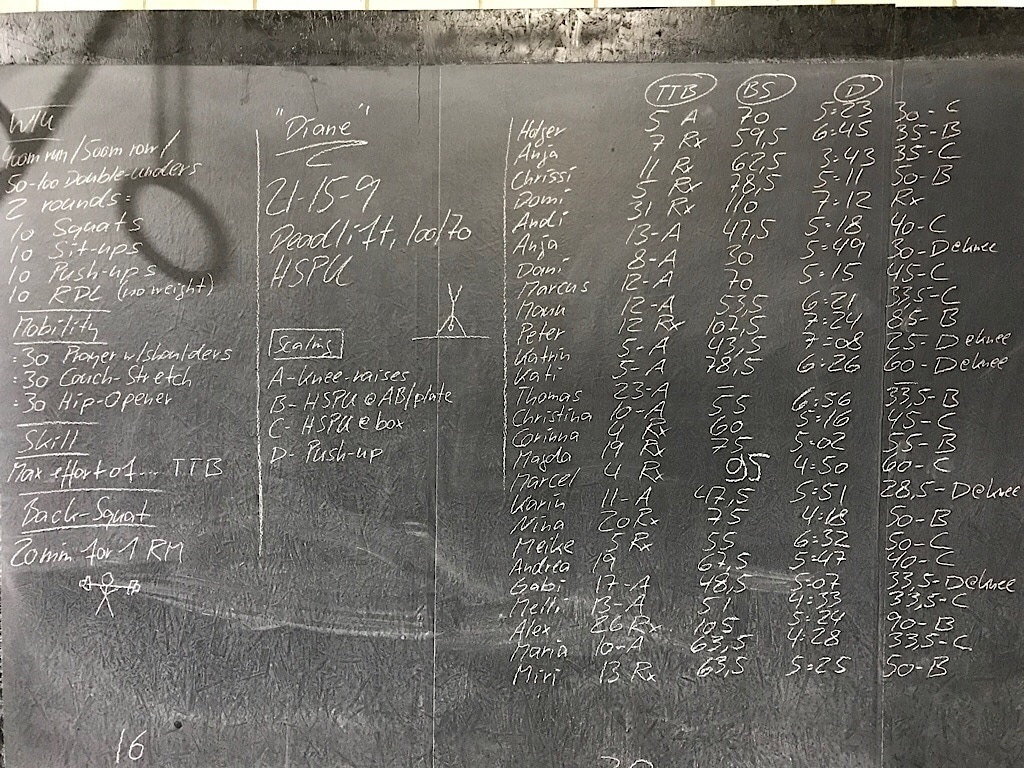 W/U
400m run/500m row/
50-100 Double-unders
2 rounds:
10 Squats
10 Sit-ups
10 Push-ups
10 RDL (no weight)
Mobility
:30 Prayer w/shoulders
:30 Couch-Stretch
:30 Hip-Opener
Skill
Max effort of... TTB
Back-Squat
20min for 1 RM
16
"Diane"
21-15-9
Deadlift, 100/70
HSPU
Scaling
A-knee-raises
B- HSPU @ AB/plate
C- HSPU @ box
D- Push-up
TTB BS D
Holger 5 A 70 5:23 30-C
Anja 7 Rx 59,5 6:45 35-B
Chrissi 11 Rx 62,5 3:43 35-C
Domi 5 Rx 78,5 5:11 50-B
Andi 31 Rx 110 7:12 Rx
Anja 13-A 47,5 5:18 40-C
Dani 8-A 30 5:49 30-D@knee
Marcus 12-A 70 5:15 45-C
Manu 12-A 53,5 6:21 33,5-C
Peter 12 Rx 107,5 7:24 85-B
Katrin 5-A 43,5 7:08 25-D@knee
Kati 5-A 78,5 6:26 60-D@knee
Thomas 23-A – – –
Christina 10-A 55 6:56 33,5-B
Corinna 4 Rx 60 5:16 45-C
Magda 19 Rx 75 5:02 55-B
Marcel 4 Rx 95 4:50 60-C
Karin 11-A 47,5 5:51 28,5-D@knee
Nina 20Rx 75 4:18 50-B
Meike 5 Rx 55 6:32 50-C
Andrea 19 67,5 5:47 40-C
Gabi 17-A 48,5 5:07 33,5-D@knee
Melli 13-A 51 4:33 33,5-C
Alex 26 Rx 105 5:24 90-B
Maria 10-A 63,5 4:28 33,5-C
Miri 13 Rx 63,5 5:25 50-B